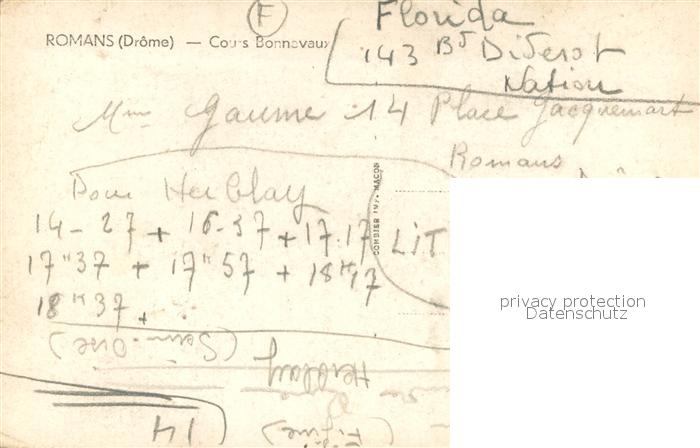 F
ROMANS (Drôme) — Cours Bonnevaux
Florida
143 Bd Diderot
Nation
Mme Gaume 14 Place Jacquemart
Romans
Pour Herblay
14-27 + 16-37 + 17.17
17H37 + 17H57 + 18H17
18H37.
LIT
COMBIER IMP. MACON
privacy protection
Datenschutz
(Seine-Oise)
Herblay
14